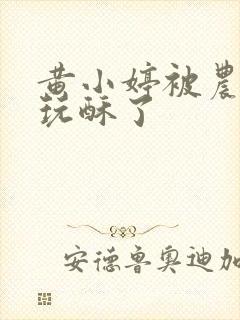 黄小婷被農
玩酥了
安德鲁奥迪加